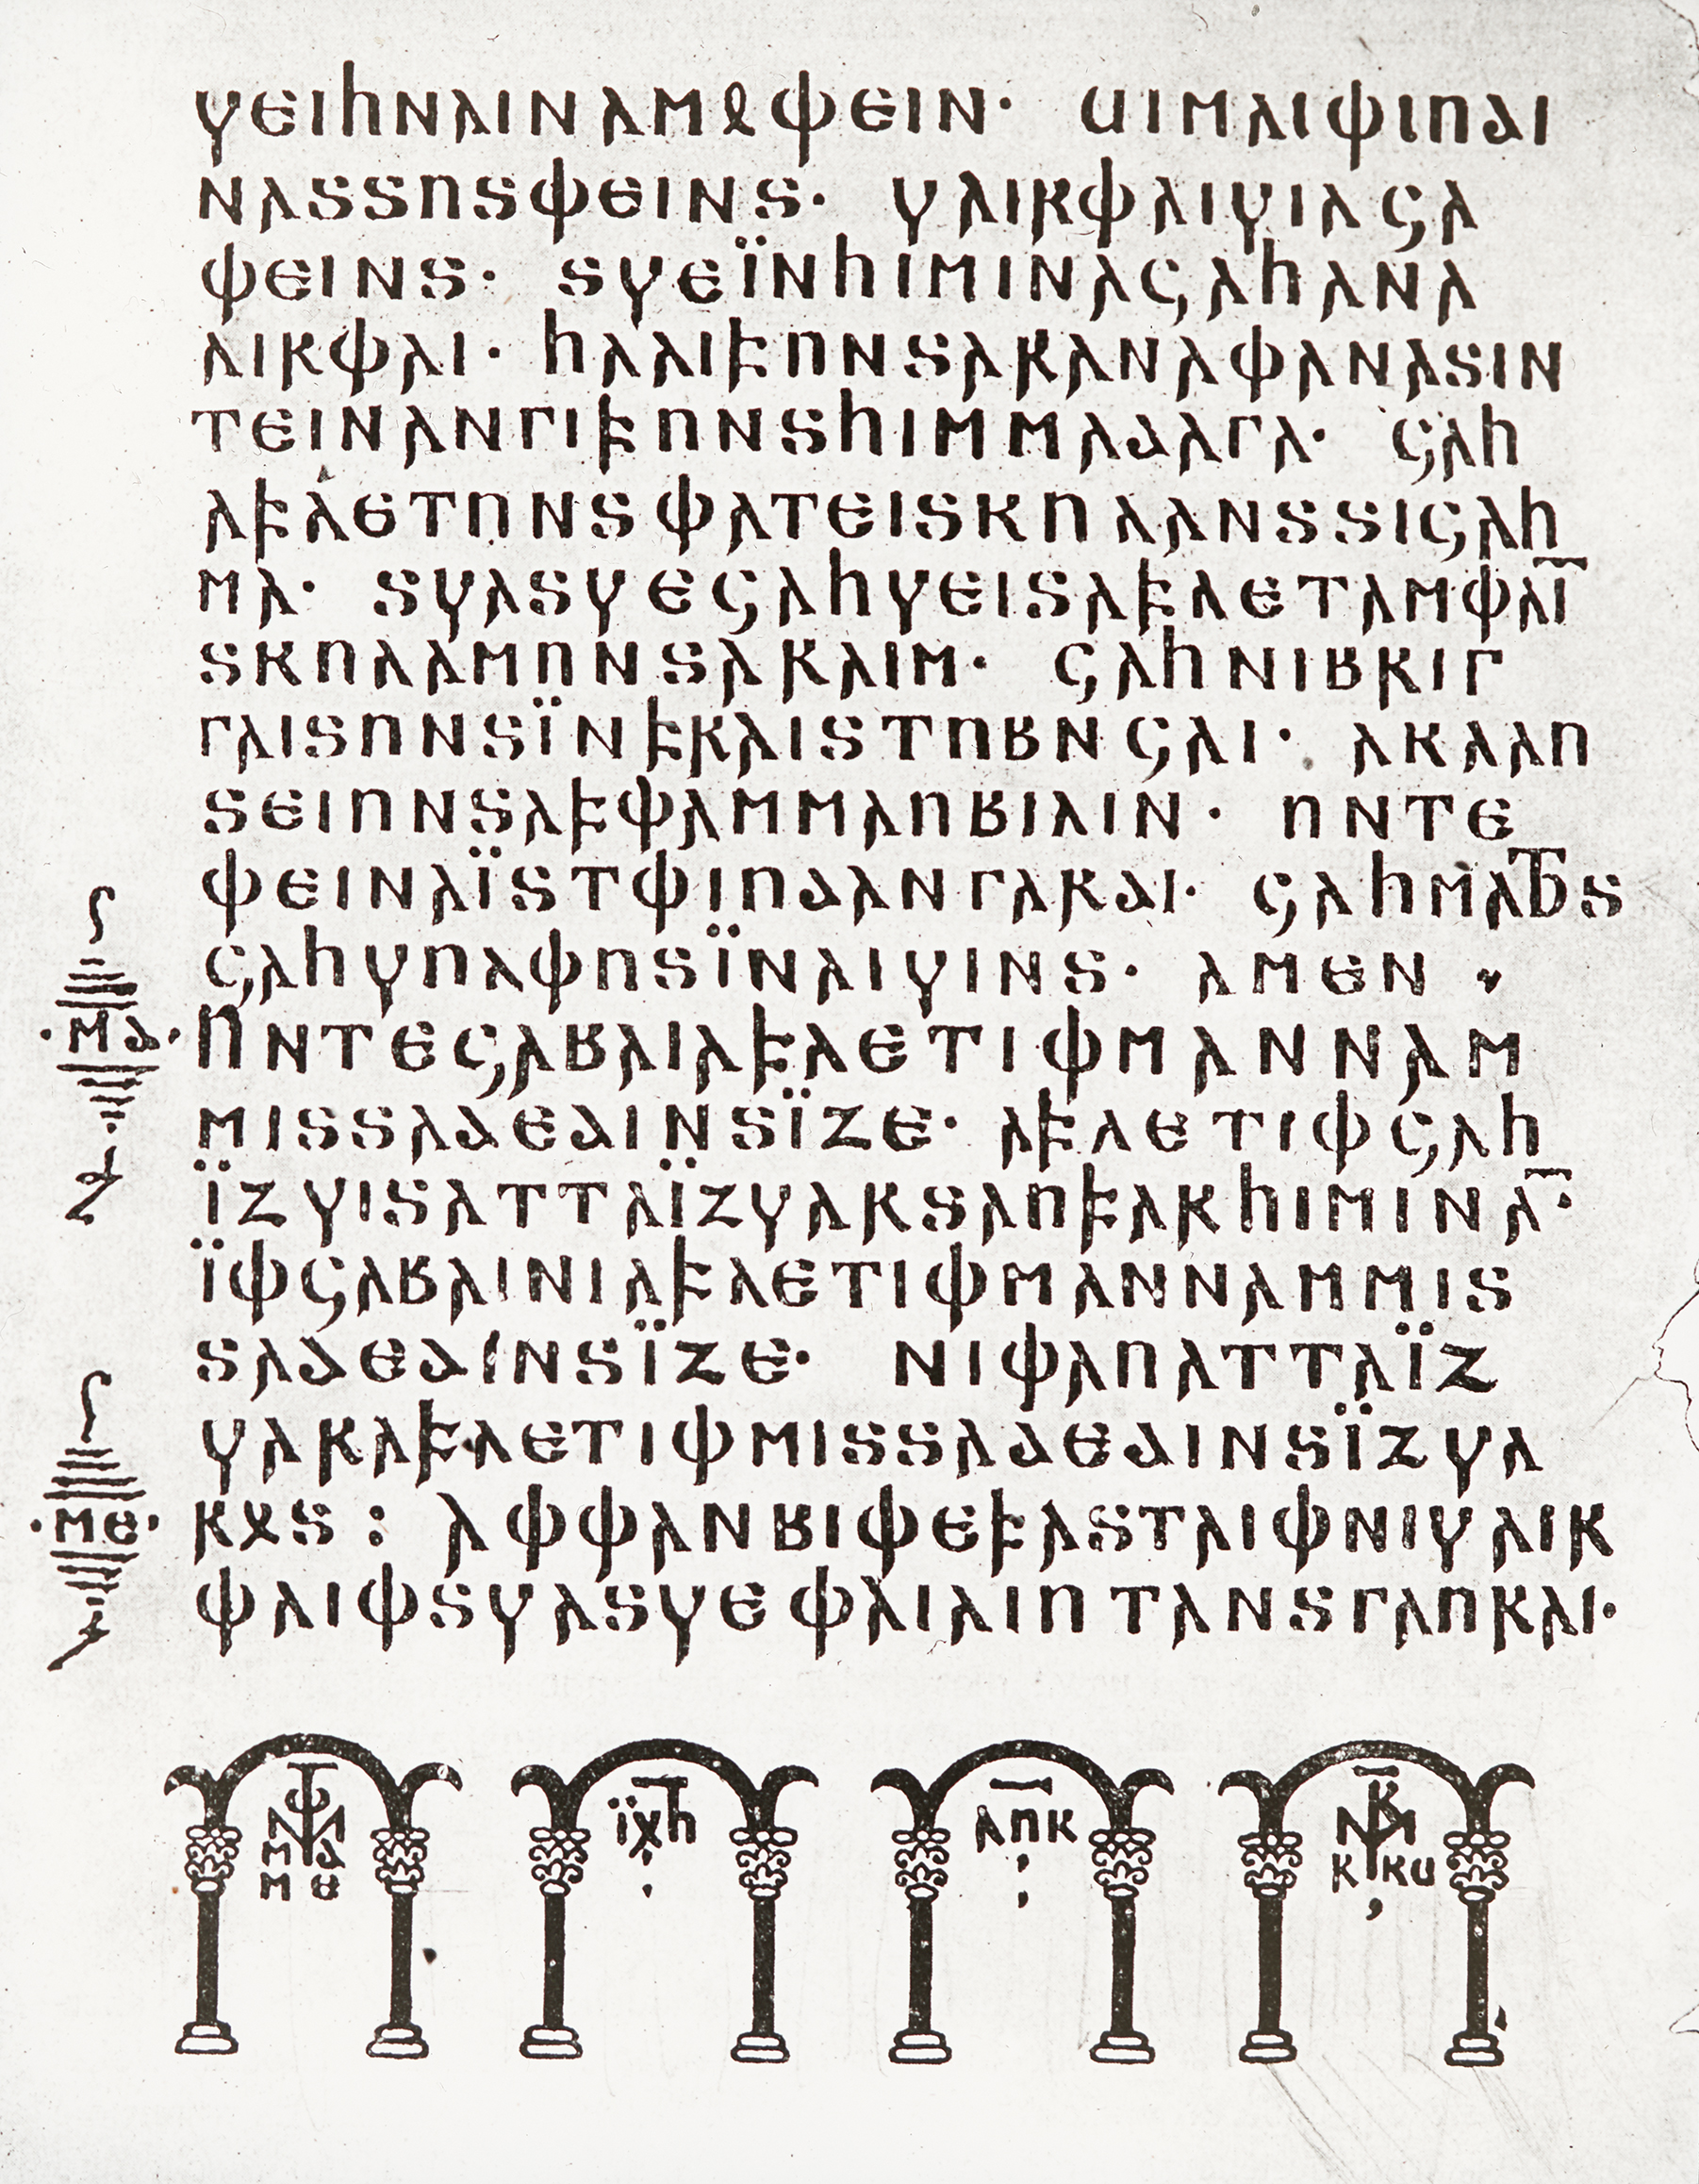 𐍅𐌴𐌹𐌷𐌽𐌰𐌹𐌽𐌰𐌼𐍉𐌸𐌴𐌹𐌽· 𐌵𐌹𐌼𐌰𐌹𐌸𐌹𐌿𐌳𐌹
𐌽𐌰𐍃𐍃𐌿𐍃𐌸𐌴𐌹𐌽𐍃· 𐍅𐌰𐌹𐍂𐌸𐌰𐌹𐍅𐌹𐌻𐌾𐌰
𐌸𐌴𐌹𐌽𐍃· 𐍃𐍅𐌴𐌹̈𐌽𐌷𐌹𐌼𐌹𐌽𐌰𐌾𐌰𐌷𐌰𐌽𐌰
𐌰𐌹𐍂𐌸𐌰𐌹· 𐌷𐌻𐌰𐌹𐍆𐌿𐌽𐍃𐌰𐍂𐌰𐌽𐌰𐌸𐌰𐌽𐌰𐍃𐌹𐌽
𐍄𐌴𐌹𐌽𐌰𐌽𐌲𐌹𐍆𐌿𐌽𐍃𐌷𐌹𐌼𐌼𐌰𐌳𐌰𐌲𐌰· 𐌾𐌰𐌷
𐌰𐍆𐌻𐌴𐍄𐌿𐌽𐍃𐌸𐌰𐍄𐌴𐌹𐍃𐌺𐌿𐌻𐌰𐌽𐍃𐍃𐌹𐌾𐌰𐌹
𐌼𐌰· 𐍃𐍅𐌰𐍃𐍅𐌴𐌾𐌰𐌷𐍅𐌴𐌹𐍃𐌰𐍆𐌻𐌴𐍄𐌰𐌼𐌸𐌰𐌹̅
𐍃𐌺𐌿𐌻𐌰𐌼𐌿𐌽𐍃𐌰𐍂𐌰𐌹𐌼· 𐌾𐌰𐌷𐌽𐌹𐌱𐍂𐌹𐌲
𐌲𐌰𐌹𐍃𐌿𐌽𐍃𐌹̈𐌽𐍆𐍂𐌰𐌹𐍃𐍄𐌿𐌱𐌽𐌾𐌰𐌹· 𐌰𐌺𐌻𐌰𐌿
𐍃𐌴𐌹𐌿𐌽𐍃𐌰𐍆𐌸𐌰𐌼𐌼𐌰𐌿𐌱𐌹𐌻𐌹𐌽· 𐌿𐌽𐍄𐌴
𐌸𐌴𐌹𐌽𐌰𐌹̈𐍃𐍄𐌸𐌹𐌿𐌳𐌰𐌽𐌲𐌰𐍂𐌳𐌹· 𐌾𐌰𐌷𐌼𐌰𐌷𐍄𐍃
𐌾𐌰𐌷𐍅𐌿𐌻𐌸𐌿𐍃𐌹̈𐌽𐌰𐌹𐍅𐌹𐌽𐍃· 𐌰𐌼𐌴𐌽
·𐌼𐌳· 𐌿𐌽𐍄𐌴𐌾𐌰𐌱𐌰𐌹𐌰𐍆𐌻𐌴𐍄𐌹𐌸𐌼𐌰𐌽𐌽𐌰𐌼
𐌼𐌹𐍃𐍃𐌰𐌳𐌴𐌳𐌹𐌽𐍃𐌹̈𐌶𐌴· 𐌰𐍆𐌻𐌴𐍄𐌹𐌸𐌾𐌰𐌷
𐌹̈𐌶𐍅𐌹𐍃𐌰𐍄𐍄𐌰𐌹̈𐌶𐍅𐌰𐍂𐍃𐌰𐌿𐍆𐌰𐍂𐌷𐌹𐌼𐌹𐌽𐌰̅·
𐌹̈𐌸𐌾𐌰𐌱𐌰𐌹𐌽𐌹𐌰𐍆𐌻𐌴𐍄𐌹𐌸𐌼𐌰𐌽𐌽𐌰𐌼𐌼𐌹𐍃
𐍃𐌰𐌳𐌴𐌳𐌹𐌽𐍃𐌹̈𐌶𐌴· 𐌽𐌹𐌸𐌰𐌿𐌰𐍄𐍄𐌰𐌹̈𐌶
𐍅𐌰𐍂𐌰𐍆𐌻𐌴𐍄𐌹𐌸𐌼𐌹𐍃𐍃𐌰𐌳𐌴𐌳𐌹𐌽𐍃𐌹̈𐌶𐍅𐌰
·𐌼𐌴· 𐍂𐍉𐍃: 𐌰𐌸𐌸𐌰𐌽𐌱𐌹𐌸𐌴𐍆𐌰𐍃𐍄𐌰𐌹𐌸𐌽𐌹𐍅𐌰𐌹𐍂
𐌸𐌰𐌹𐌸𐍃𐍅𐌰𐍃𐍅𐌴𐌸𐌰𐌹𐌻𐌹𐌿𐍄𐌰𐌽𐍃𐌲𐌰𐌿𐍂𐌰𐌹·
𐌼𐌳
𐌼𐌴